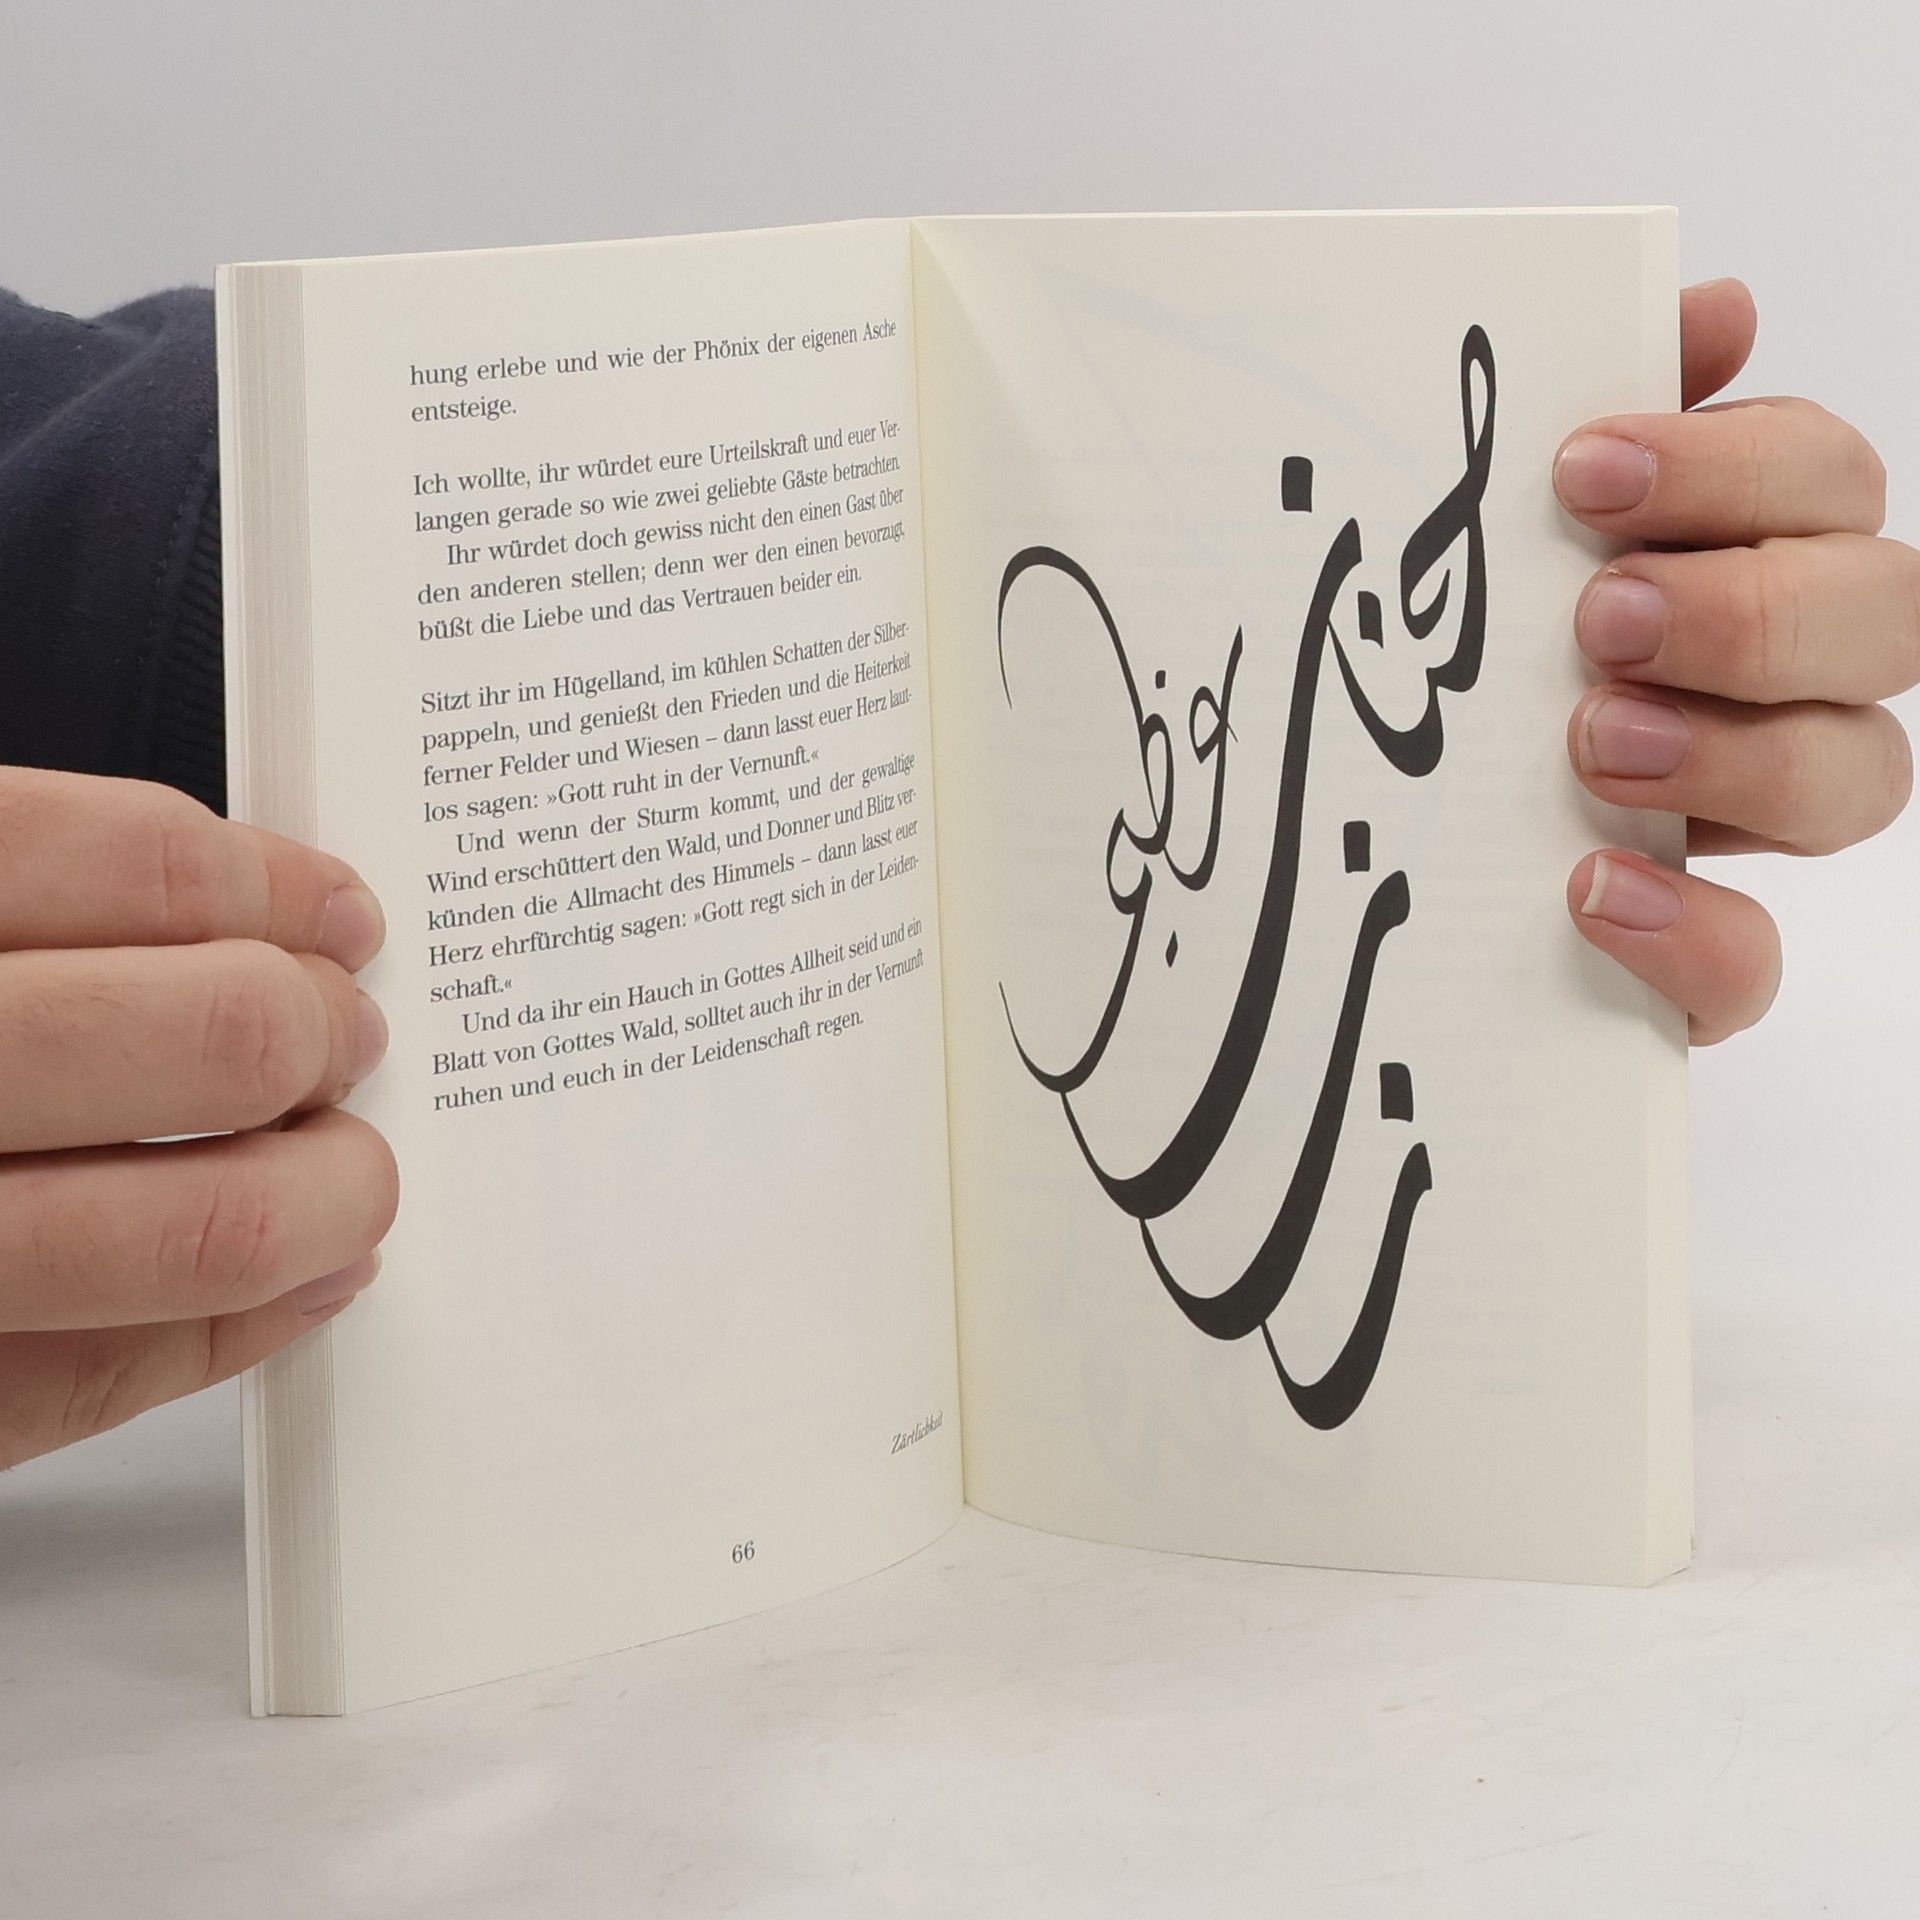 hung erlebe und wie der Phönix der eigenen Asche
entsteige.
Ich wollte, ihr würdet eure Urteilskraft und euer Ver-
langen gerade so wie zwei geliebte Gäste betrachten.
Ihr würdet doch gewiss nicht den einen Gast über
den anderen stellen; denn wer den einen bevorzugt,
büßt die Liebe und das Vertrauen beider ein.
Sitzt ihr im Hügelland, im kühlen Schatten der Silber-
pappeln, und genießt den Frieden und die Heiterkeit
ferner Felder und Wiesen – dann lasst euer Herz laut-
los sagen: »Gott ruht in der Vernunft.«
Und wenn der Sturm kommt, und der gewaltige
Wind erschüttert den Wald, und Donner und Blitz ver-
künden die Allmacht des Himmels – dann lasst euer
Herz ehrfürchtig sagen: »Gott regt sich in der Leiden-
schaft.«
Und da ihr ein Hauch in Gottes Allheit seid und ein
Blatt von Gottes Wald, solltet auch ihr in der Vernunft
ruhen und euch in der Leidenschaft regen.
Zärtlichkeit
66